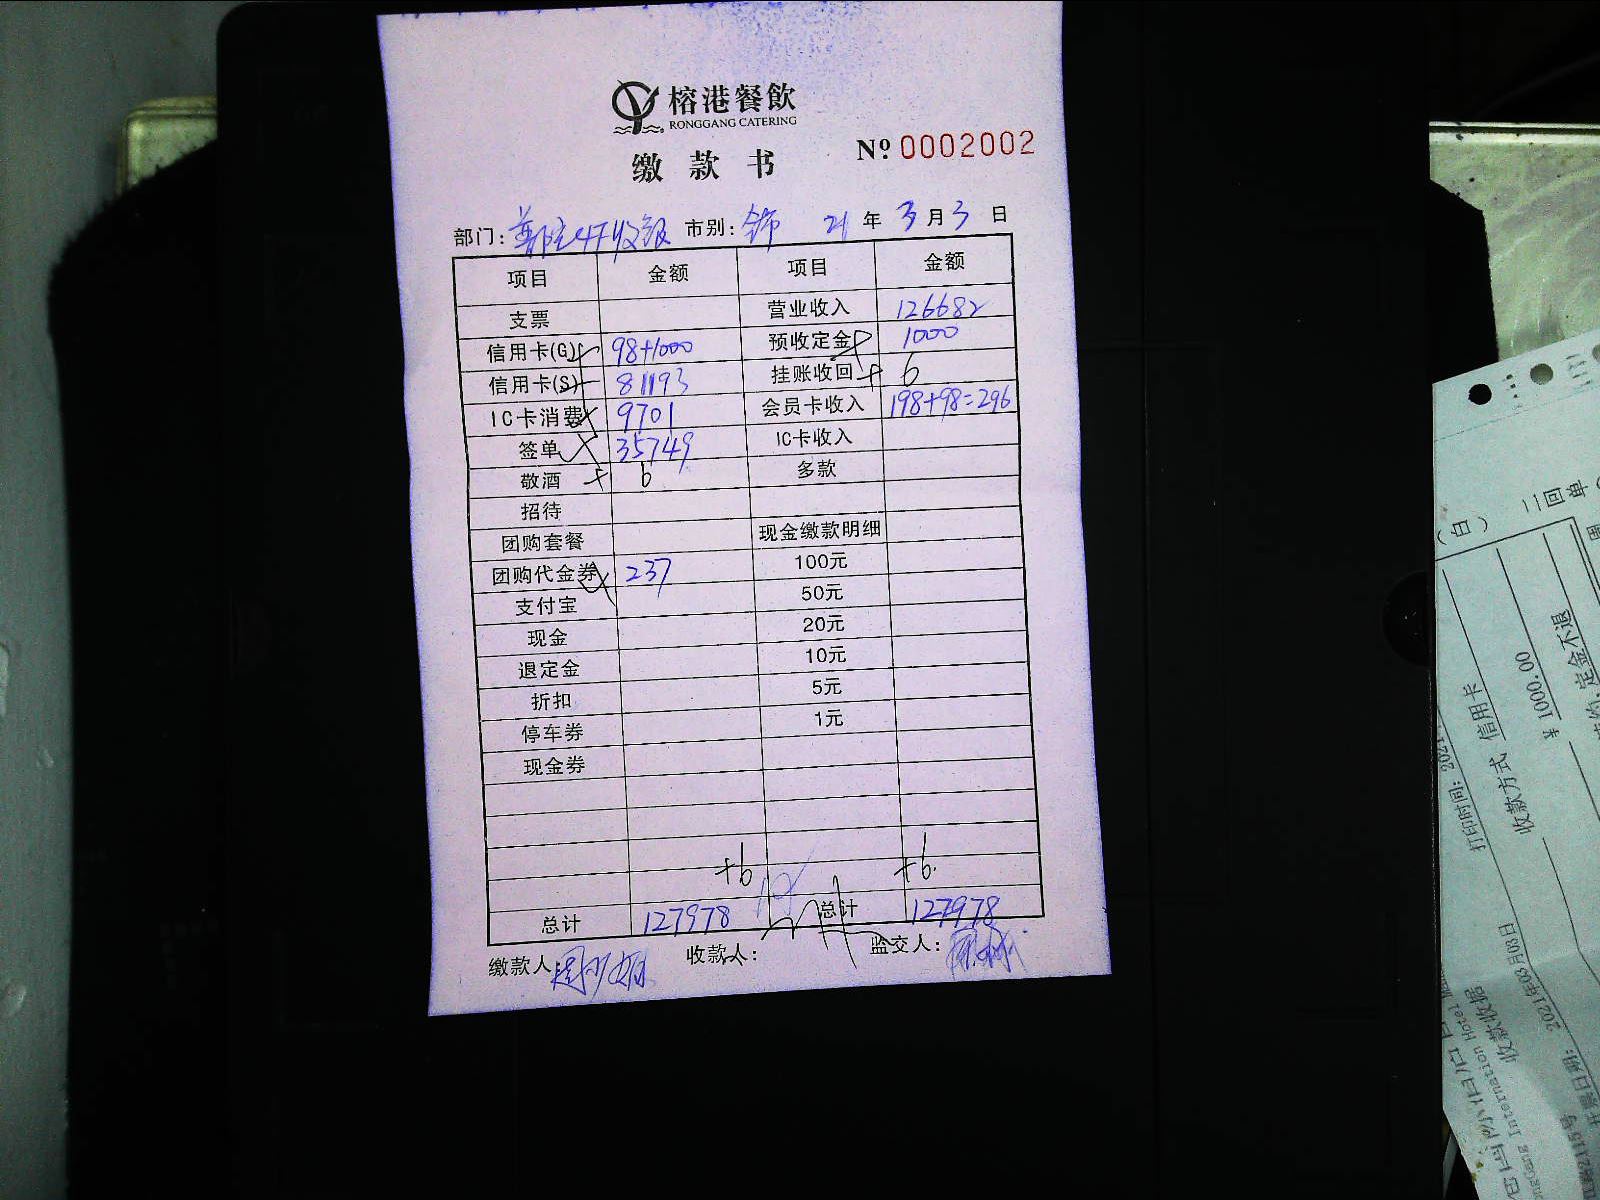 榕港餐飲
RONGGANG CATERING
缴款书
№ 0002002
部门: 4F收银 市别: 全市 21年3月3日
项目 金额 项目 金额
支票 营业收入 126682
信用卡(G) 98+1000 预收定金 1000
信用卡(S) 81193 挂账收回 + 6
IC卡消费 9701 会员卡收入 198+98=296
签单 35749 IC卡收入
敬酒 + 6 多款
招待
团购套餐 现金缴款明细
团购代金券 237 100元
支付宝 50元
现金 20元
退定金 10元
折扣 5元
停车券 1元
现金券
+6 +6
总计 127978 总计 127978
缴款人: 收款人: 监交人:
二回单
(白)
定金不退
¥ 1000.00
收款方式 信用卡
打印时间: 2021
2021年03月03日
收款收据
International Hotel